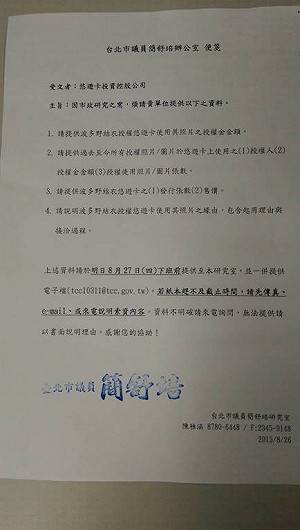 台北市議員簡舒培辦公室 便箋
受文者：悠遊卡投資控股公司
主旨：因市政研究之需，煩請貴單位提供以下之資料。
1. 請提供波多野結衣授權悠遊卡使用其照片之授權金金額。
2. 請提供過去至今所有授權照片/圖片於悠遊卡上使用之(1)授權人(2)
授權金金額(3)授權使用照片/圖片張數。
3. 請提供波多野結衣悠遊卡之(1)發行張數(2)售價。
4. 請說明波多野結衣授權悠遊卡使用其照片之緣由，包含起用理由與
接洽過程。
上述資料請於明日8月27日(四)下班前提供至本研究室，並一併提供
電子檔(tcc10311@tcc.gov.tw)。若紙本趕不及截止時間，請先傳真、
e-mail、或來電說明索資內容。資料不明確請來電詢問，無法提供請
以書面說明理由。感謝您的協助！
臺北市議員 簡舒培
台北市議員簡舒培研究室
8780-6448 / F:2345-9148
2015/8/26